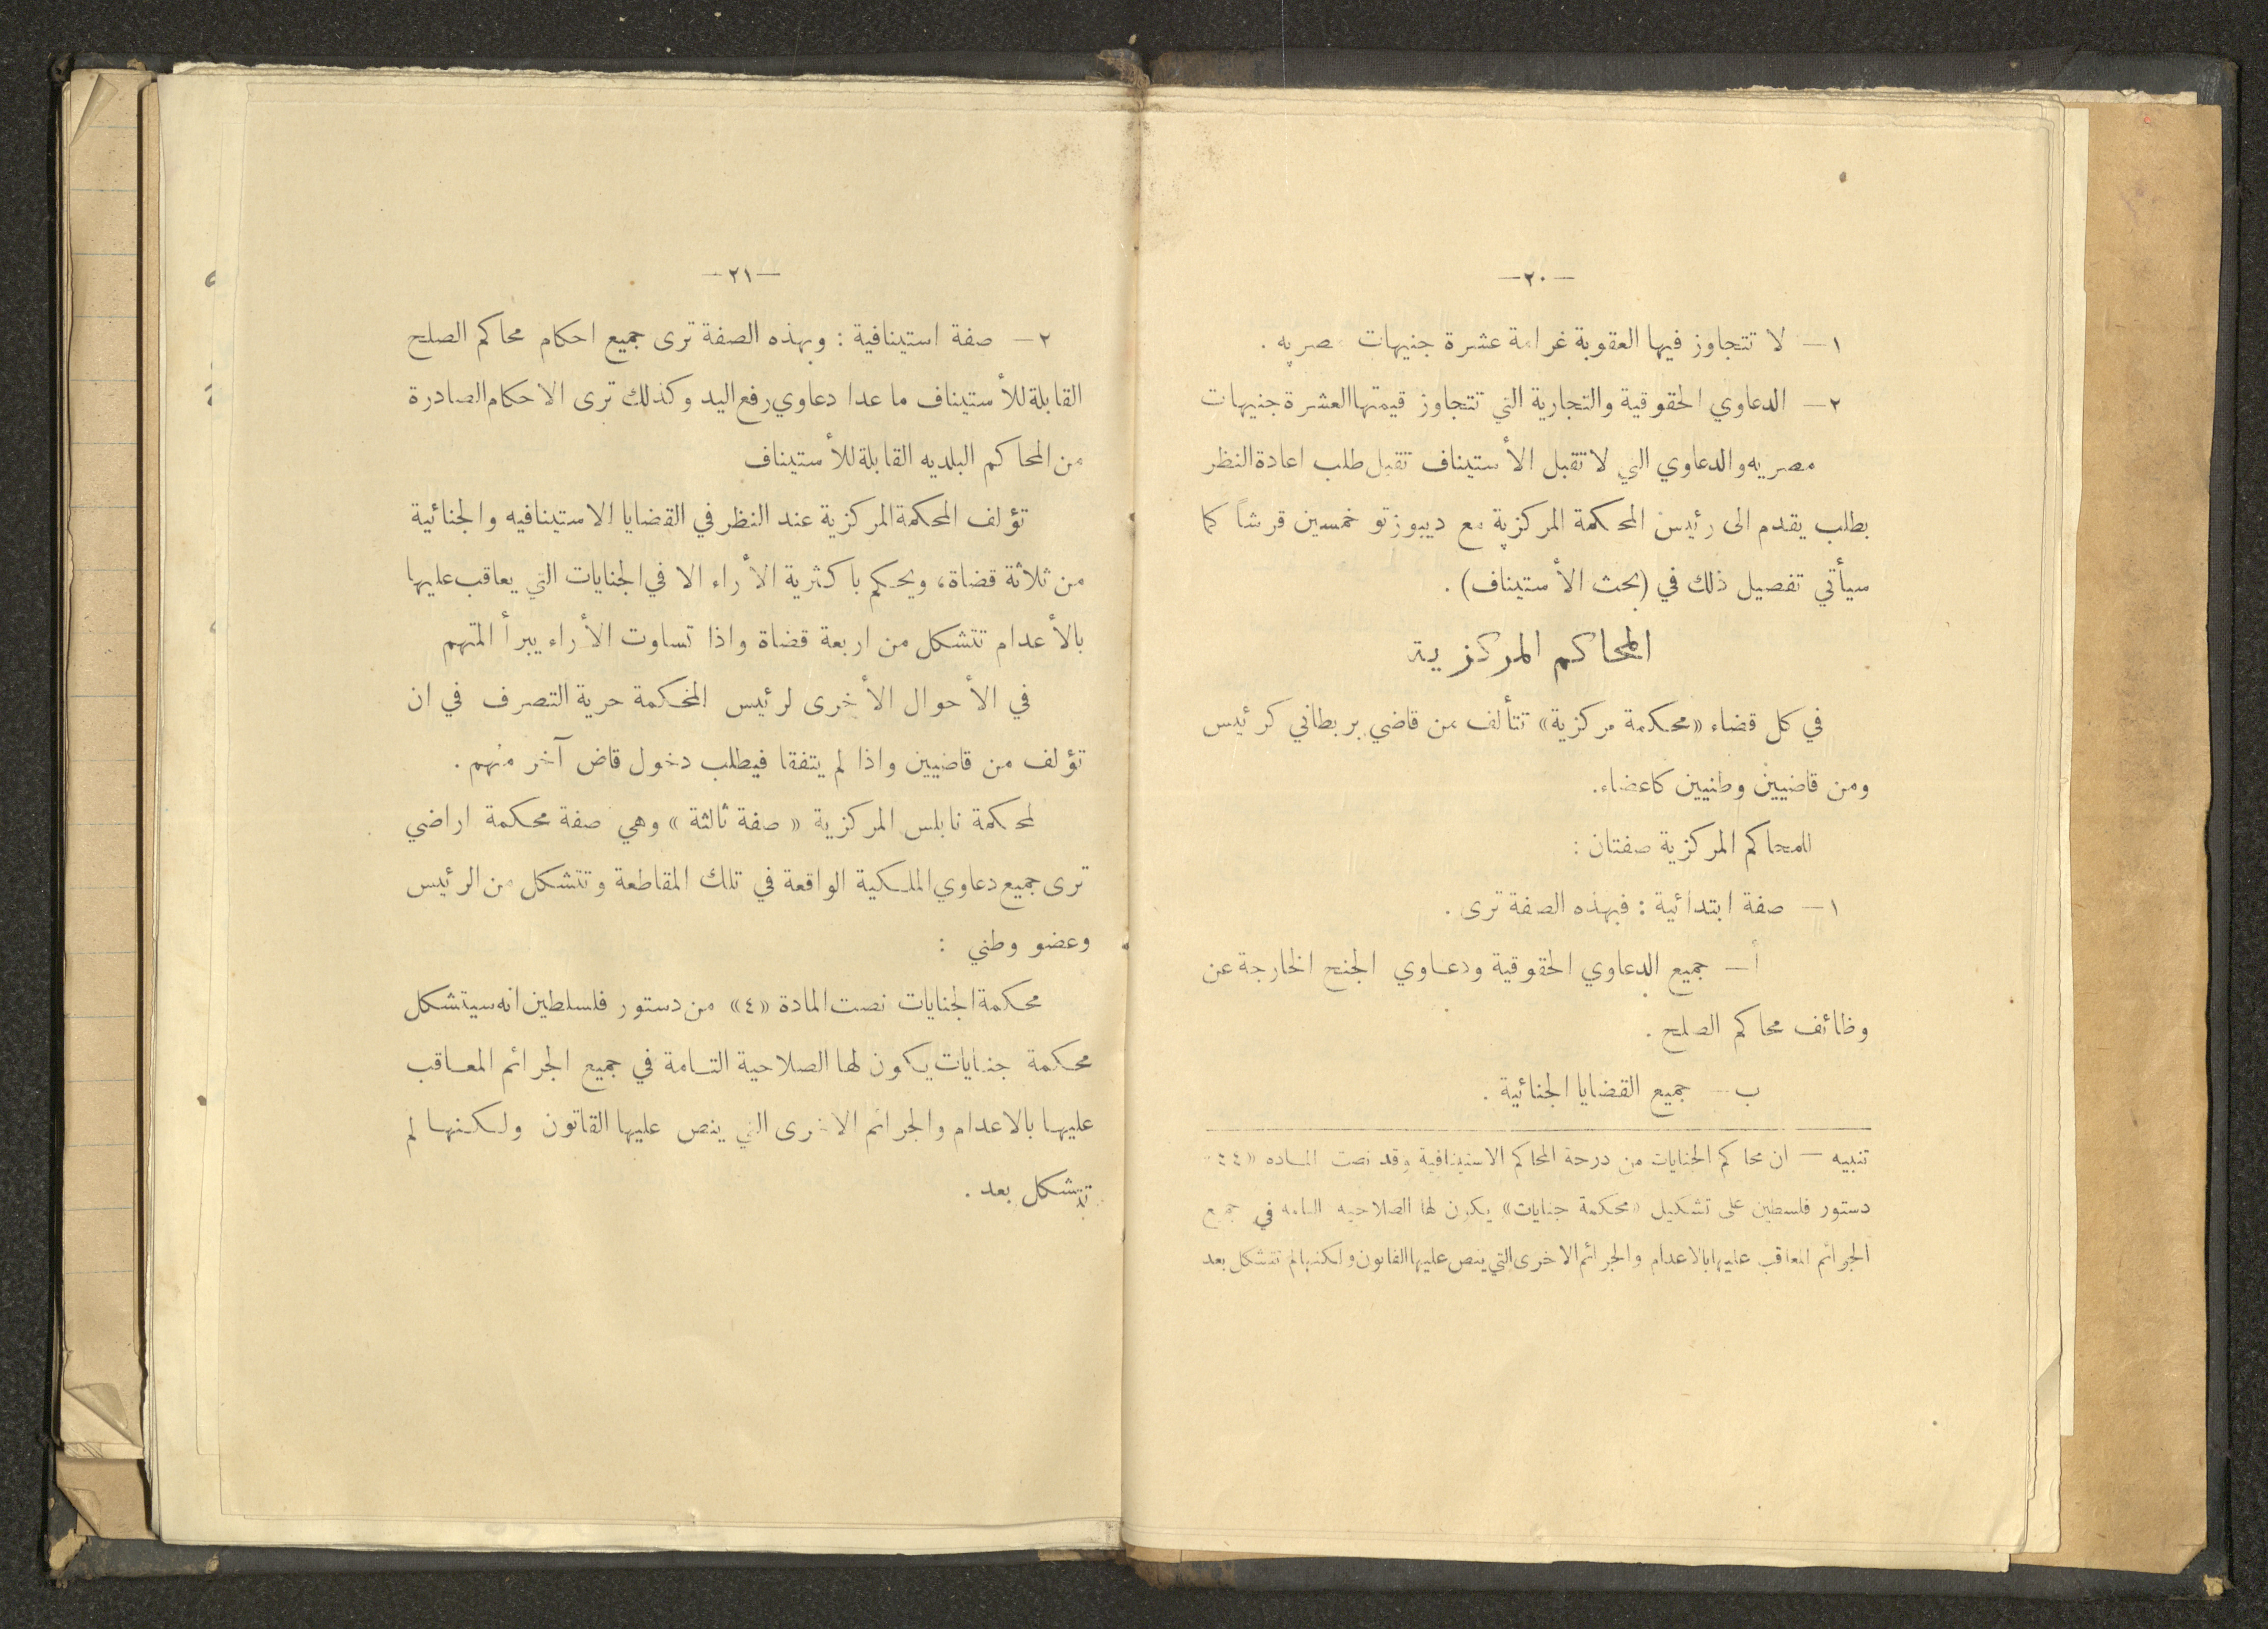 —٢٠—
١— لا تتجاوز فيها العقوبة غرامة عشرة جنيهات مصريه .
٢— الدعاوي الحقوقية والتجارية التي تتجاوز قيمتها العشرة جنيهات
مصريه والدعاوي التي لا تقبل الأستيناف تقبل طلب اعادة النظر
بطلب يقدم الى رئيس المحكمة المركزية مع ديبوزتو خمسين قرشاً كما
سيأتي تفصيل ذلك في (بحث الأستيناف) .
المحاكم المركزية
في كل قضاء «محكمة مركزية» تتألف من قاضي بريطاني كرئيس
ومن قاضيين وطنيين كاعضاء.
للمحاكم المركزية صفتان :
١— صفة ابتدائية : فبهذه الصفة ترى .
أ— جميع الدعاوي الحقوقية ودعاوي الجنح الخارجة عن
وظائف محاكم الصلح .
ب— جميع القضايا الجنائية .
تنبيه — ان محاكم الجنايات من درجة المحاكم الاستينافية وقد نصت الماده «٤٤
دستور فلسطين على تشكيل «محكمة جنايات» يكون لها الصلاحيه التامه في جميع
الجرائم المعاقب عليها بالاعدام والجرائم الاخرى التي ينص عليها القانون ولكنها لم تتشكل بعد
—٢١—
٢— صفة استينافية : وبهذه الصفة ترى جميع احكام محاكم الصلح
القابلة للأستيناف ما عدا دعاوي رفع اليد وكذلك ترى الاحكام الصادرة
من المحاكم البلديه القابلة للأستيناف
تؤلف المحكمة المركزية عند النظر في القضايا الاستينافيه والجنائية
من ثلاثة قضاة، ويحكم باكثرية الأراء الا في الجنايات التي يعاقب عليها
بالأعدام تتشكل من اربعة قضاة واذا تساوت الأراء يبرأ المتهم
في الأحوال الأخرى لرئيس المحكمة حرية التصرف في ان
تؤلف من قاضيين واذا لم يتفقا فيطلب دخول قاض آخر منهم .
لمحكمة نابلس المركزية « صفة ثالثة » وهي صفة محكمة اراضي
ترى جميع دعاوي الملكية الواقعة في تلك المقاطعة وتتشكل من الرئيس
وعضو وطني :
محكمة الجنايات نصت المادة «٤» من دستور فلسلطين انه سيتشكل
محكمة جنايات يكون لها الصلاحية التامة في جميع الجرائم المعاقب
عليها بالاعدام والجرائم الاخرى التي ينص عليها القاتون ولكنها لم
تتشكل بعد .